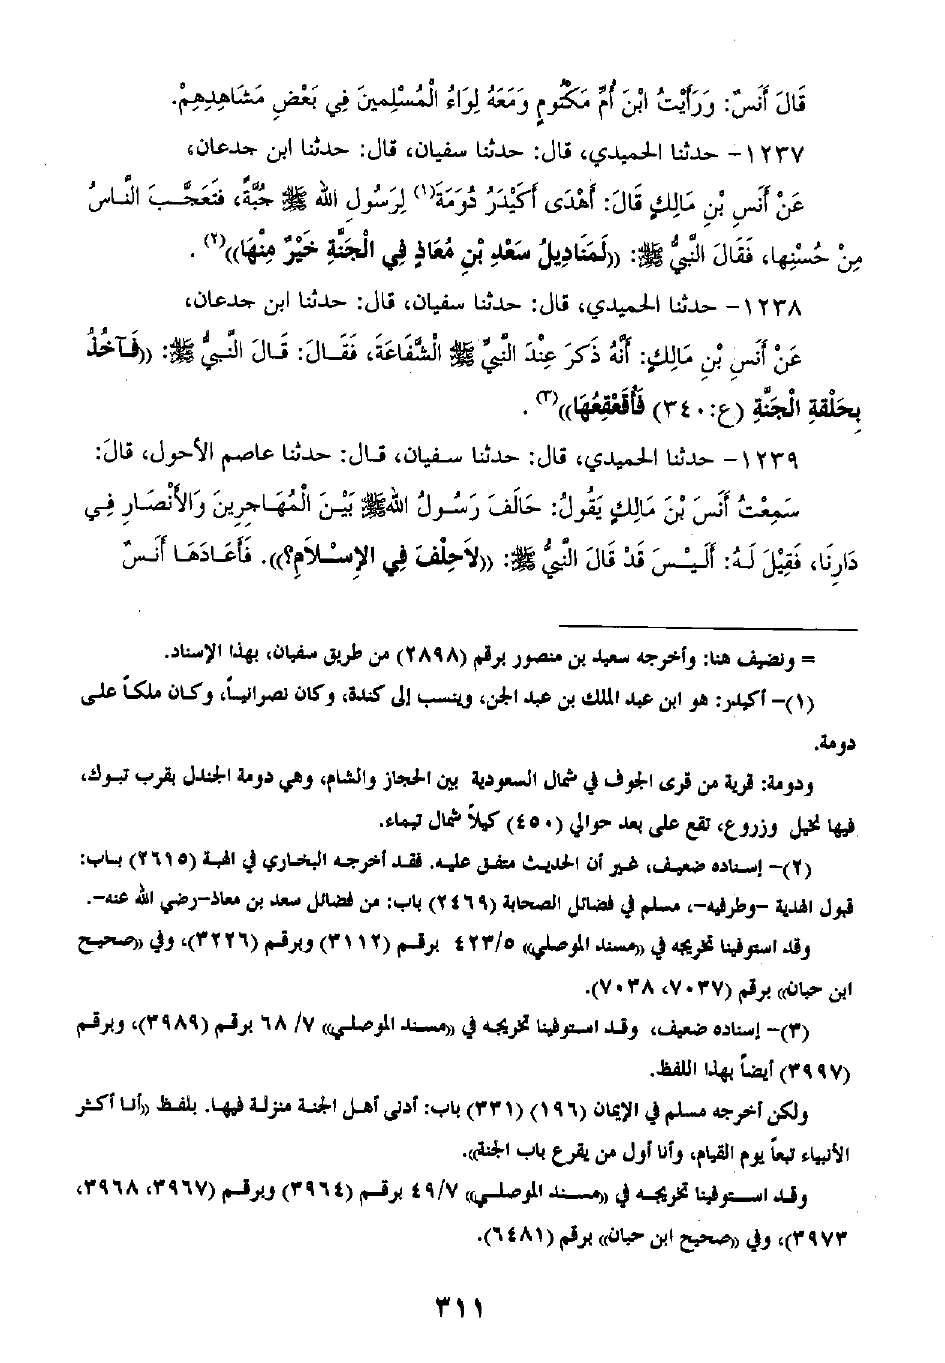 قَالَ أَنَسٌ: وَرَأَيْتُ ابْنَ أُمِّ مَكْتُومٍ وَمَعَهُ لِوَاءُ الْمُسْلِمينَ فِي بَعْضِ مَشَاهِدِهِمْ.
١٢٣٧- حدثنا الحميدي، قال: حدثنا سفيان، قال: حدثنا ابن جدعان،
عَنْ أَنَسِ بْنِ مَالِكٍ قَالَ: أَهْدَى أُكَيْدَرُ دُومَةَ(١) لِرَسُولِ الله ﷺ جُبَّةً، فَتَعَجَّبَ النَّاسُ
مِنْ حُسْنِها، فَقَالَ النَّبِيُّ ﷺ: ((لَمَنَاديلُ سَعْدِ بْنِ مُعَاذٍ فِي الْجَنَّةِ خَيْرٌ مِنْهَا))(٢).
١٢٣٨- حدثنا الحميدي، قال: حدثنا سفيان، قال: حدثنا ابن جدعان،
عَنْ أَنَسِ بْنِ مَالِكٍ: أَنَّهُ ذَكَرَ عِنْدَ النَّبِيِّ ﷺ الشَّفَاعَةَ، فَقَالَ: قَالَ النَّبِيُّ ﷺ: ((فَآخُذُ
بِحَلْقةِ الْجَنَّةِ (ع:٣٤٠) فَأُقَعْقِعُهَا))(٣).
١٢٣٩- حدثنا الحميدي، قال: حدثنا سفيان، قال: حدثنا عاصم الأحول، قال:
سَمِعْتُ أَنَسَ بْنَ مَالِكٍ يَقُولُ: حَالَفَ رَسُولُ اللهﷺ بَيْنَ الْمُهَاجِرِينَ وَالأَنْصَارِ فِي
دَارِنَا، فَقِيْلَ لَهُ: أَلَيْسَ قَدْ قَالَ النَّبِيُّ ﷺ: ((لاَحِلْفَ فِي الإِسْلاَمِ؟)). فَأَعَادَهَا أَنَسٌ
= ونضيف هنا: وأخرجه سعيد بن منصور برقم (٢٨٩٨) من طريق سفيان، بهذا الإسناد.
(١)- أكيدر: هو ابن عبد الملك بن عبد الجن، وينسب إلى كندة، وكان نصرانياً، وكان ملكاً على
دومة.
ودومة: قرية من قرى الجوف في شمال السعودية بين الحجاز والشام، وهي دومة الجندل بقرب تبوك،
فيها نخيل وزروع، تقع على بعد حوالي (٤٥٠) كيلاً شمال تيماء.
(٢)- إسناده ضعيف، غير أن الحديث متفق عليه. فقد أخرجه البخاري في الهبة (٢٦١٥) باب:
قبول الهدية -وطرفيه-، مسلم في فضائل الصحابة (٢٤٦٩) باب: من فضائل سعد بن معاذ-رضي الله عنه-.
وقد استوفينا تخريجه في ((مسند الموصلي)) ٤٢٣/٥ برقم (٣١١٢) وبرقم (٣٢٢٦)، وفي ((صحيح
ابن حبان)) برقم (٧٠٣٧، ٧٠٣٨).
(٣)- إسناده ضعيف، وقد استوفينا تخريجه في ((مسند الموصلي)) ٧/ ٦٨ برقم (٣٩٨٩)، وبرقم
(٣٩٩٧) أيضاً بهذا اللفظ.
ولكن أخرجه مسلم في الإيمان (١٩٦) (٣٣١) باب: أدنى أهل الجنة منزلة فيها. بلفظ ((أنا أكثر
الأنبياء تبعاً يوم القيام، وأنا أول من يقرع باب الجنة)).
وقد استوفينا تخريجه في ((مسند الموصلي)) ٤٩/٧ برقم (٣٩٦٤) وبرقم (٣٩٦٧، ٣٩٦٨،
٣٩٧٣)، وفي ((صحيح ابن حبان)) برقم (٦٤٨١).
٣١١